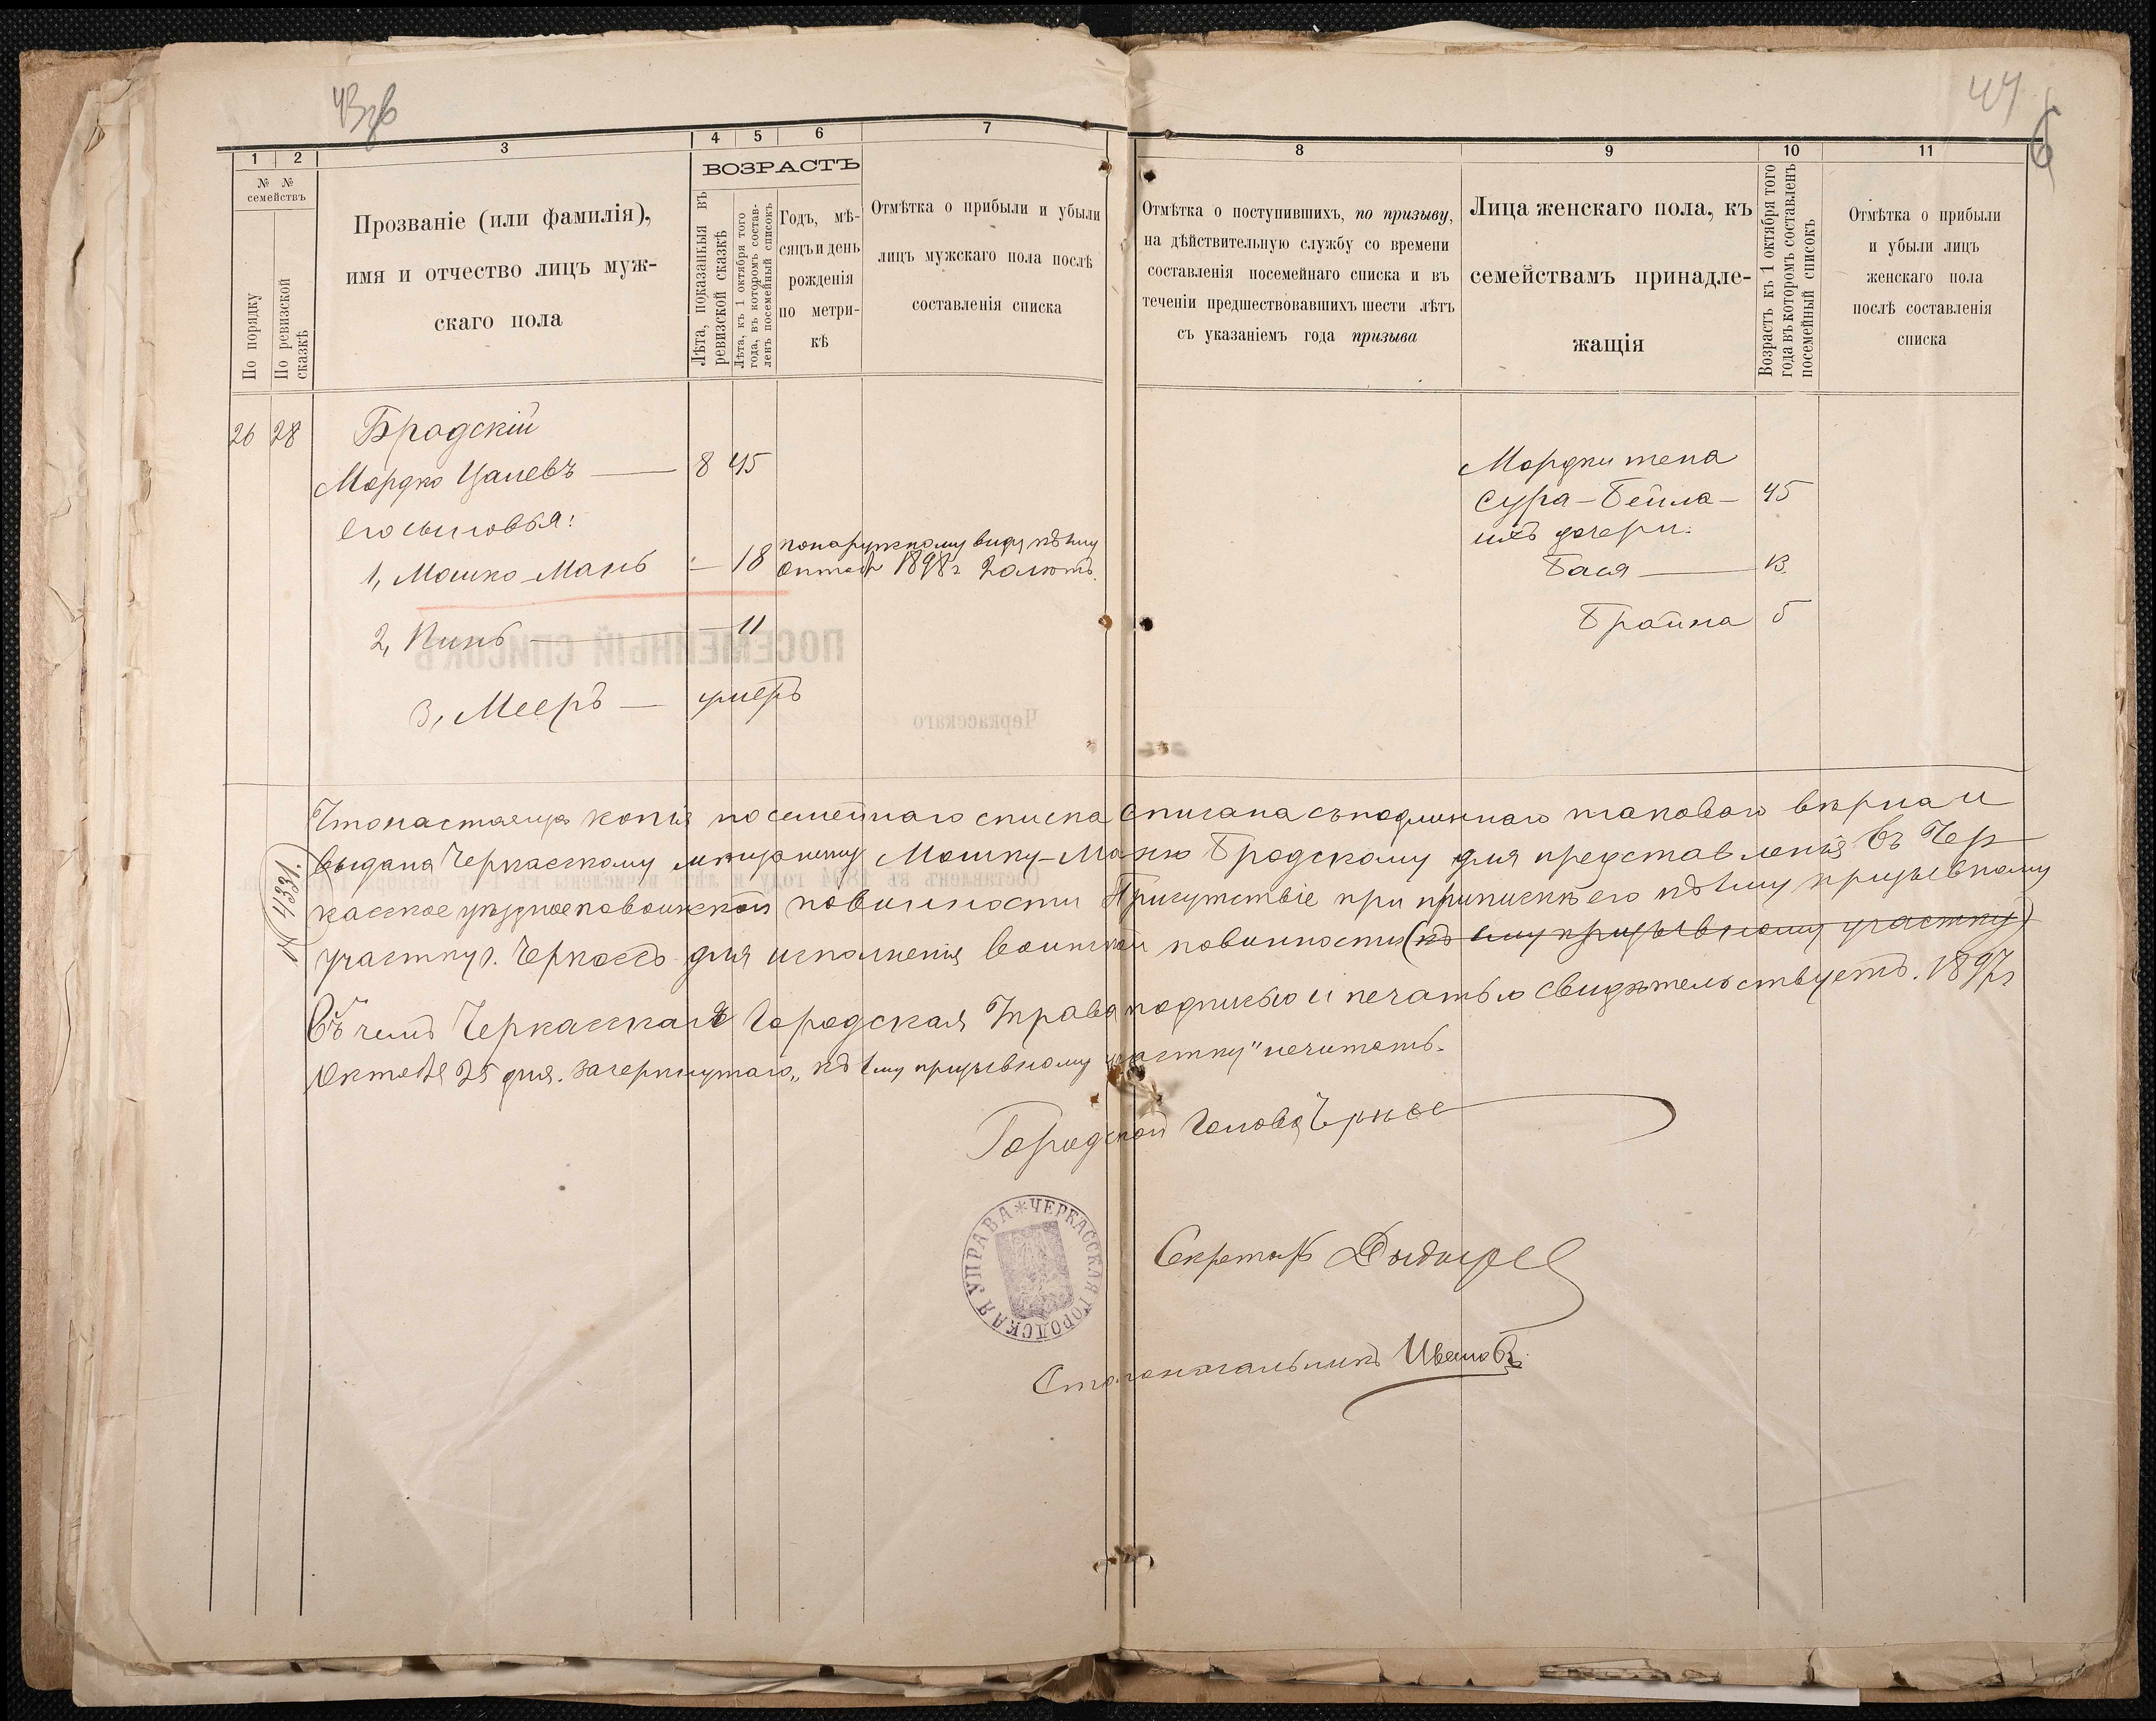 43об
44
6
1
2
3
4
5
6
7
8
9
10
11
№ №
семействъ
По порядку
По ревизской
сказкѣ
Прозваніе (или фамилія),
имя и отчество лицъ муж-
скаго пола
ВОЗРАСТЪ
Лѣта, показанныя въ
ревизской сказкѣ
Лѣта, къ 1 октября того
года, въ которомъ состав-
ленъ посемейный списокъ
Годъ, мѣ-
сяцъ и день
рожденія
по метри-
кѣ
Отмѣтка о прибыли и убыли
лицъ мужскаго пола послѣ
составленія списка
Отмѣтка о поступившихъ, по призыву,
на дѣйствительную службу со времени
составленія посемейнаго списка и въ
теченіи предшествовавшихъ шести лѣтъ
съ указаніемъ года призыва
Лица женскаго пола, къ
семействамъ принадле-
жащія
Возрастъ къ 1 октября того
года въ которомъ составленъ
посемейный списокъ
Отмѣтка о прибыли
и убыли лицъ
женскаго пола
послѣ составленія
списка
26 28 Бродскій
Мордко Цалевъ — 8 45
его сыновья:
1, Мошко-Мань — 18 по наружному виду къ 1му
Октября 1898 г 20 лѣтъ.
2, Пинь — — 11
3, Мееръ — умеръ
Мордки жена
Сура-Бейла — 45
ихъ дочери:
Бася — 13.
Бройна 5
ПОСЕМЕЙНЫЙ СПИСОКЪ
Черкасскаго
№ 4331.
Что настоящая копія посемейнаго списка списана съ подлиннаго таковаго вѣрна и
выдана Черкасскому мѣщанину Мошку-Маню Бродскому для представленія въ Чер
касское уѣздное по воинской повинности Присутствіе при припискѣ его къ 1му призывному
участку г. Черкассъ для исполненія воинской повинности (къ 1му призывному участку)
Въ чемъ Черкасская Городская Управа подписью и печатью свидѣтельствуетъ. 1897 г
Октября 25 дня. Зачеркнутаго „къ 1му призывному участку" нечитать.
Городской Голова
Секретарь
Столоначальникъ Ивановъ
ЧЕРКАССКАЯ ГОРОДСКАЯ УПРАВА